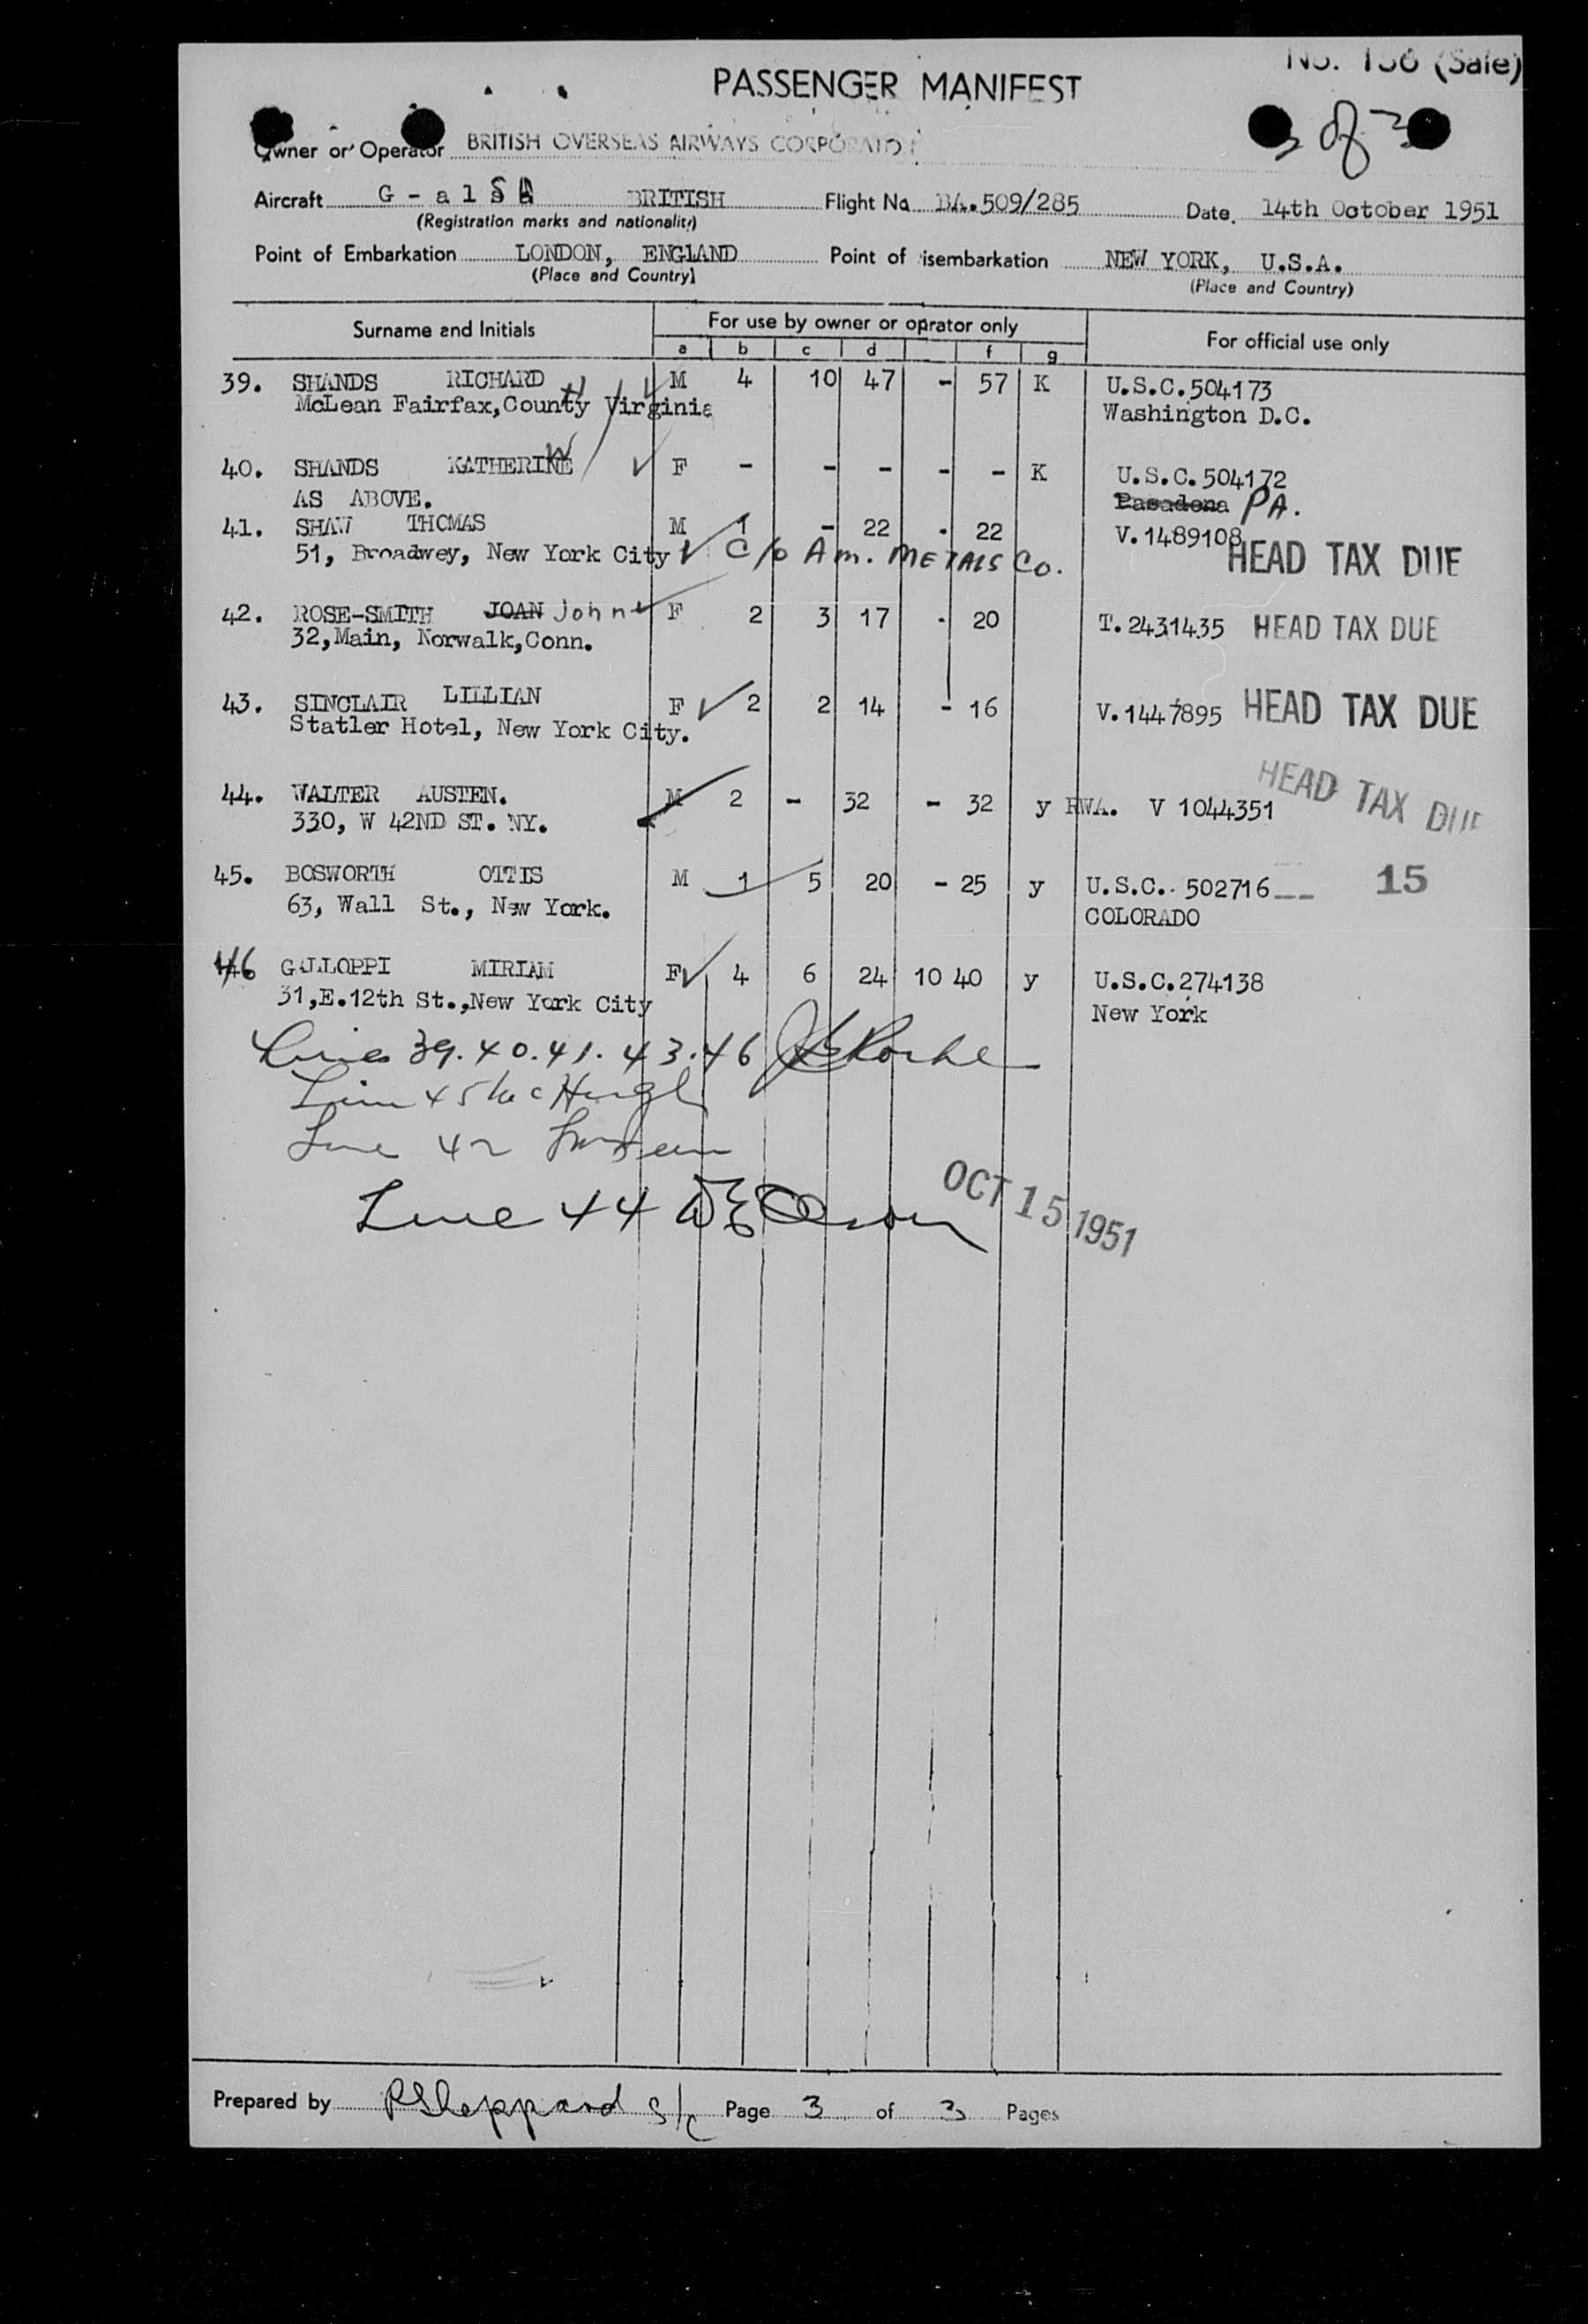 No. 136 (Sale)
PASSENGER MANIFEST
3 of 3
Owner or Operator BRITISH OVERSEAS AIRWAYS CORPORATION
Aircraft G - a l S A BRITISH Flight No BA.509/285 Date. 14th October 1951
(Registration marks and nationality)
Point of Embarkation LONDON, ENGLAND Point of isembarkation NEW YORK, U.S.A.
(Place and Country) (Place and Country)
Surname and Initials For use by owner or oprator only For official use only
a b c d f g
39. SHANDS RICHARD H M 4 10 47 - 57 K U.S.C.504173
McLean Fairfax,County Virginia Washington D.C.
40. SHANDS KATHERINE W F - - - - - K U.S.C.504172
AS ABOVE. Pasadena PA.
41. SHAW THOMAS M 1 - 22 - 22 V.1489108
51, Broadwey, New York City c/o Am. METALS Co. HEAD TAX DUE
42. ROSE-SMITH JOAN John F 2 3 17 - 20 T.2431435 HEAD TAX DUE
32,Main, Norwalk,Conn.
43. SINCLAIR LILLIAN F 2 2 14 - 16 V.1447895 HEAD TAX DUE
Statler Hotel, New York City.
44. WALTER AUSTEN. M 2 - 32 - 32 y RWA. V 1044351 HEAD TAX DUE
330, W 42ND ST. NY.
45. BOSWORTH OTTIS M 1 5 20 - 25 y U.S.C. 502716 15
63, Wall St., New York. COLORADO
46 GALLOPPI MIRIAM F 4 6 24 10 40 y U.S.C.274138
31,E.12th St.,New York City New York
Lines 39.40.41.43.46
Line 45
Line 42
Line 44
OCT 15 1951
Prepared by PSheppard s/c Page 3 of 3 Pages